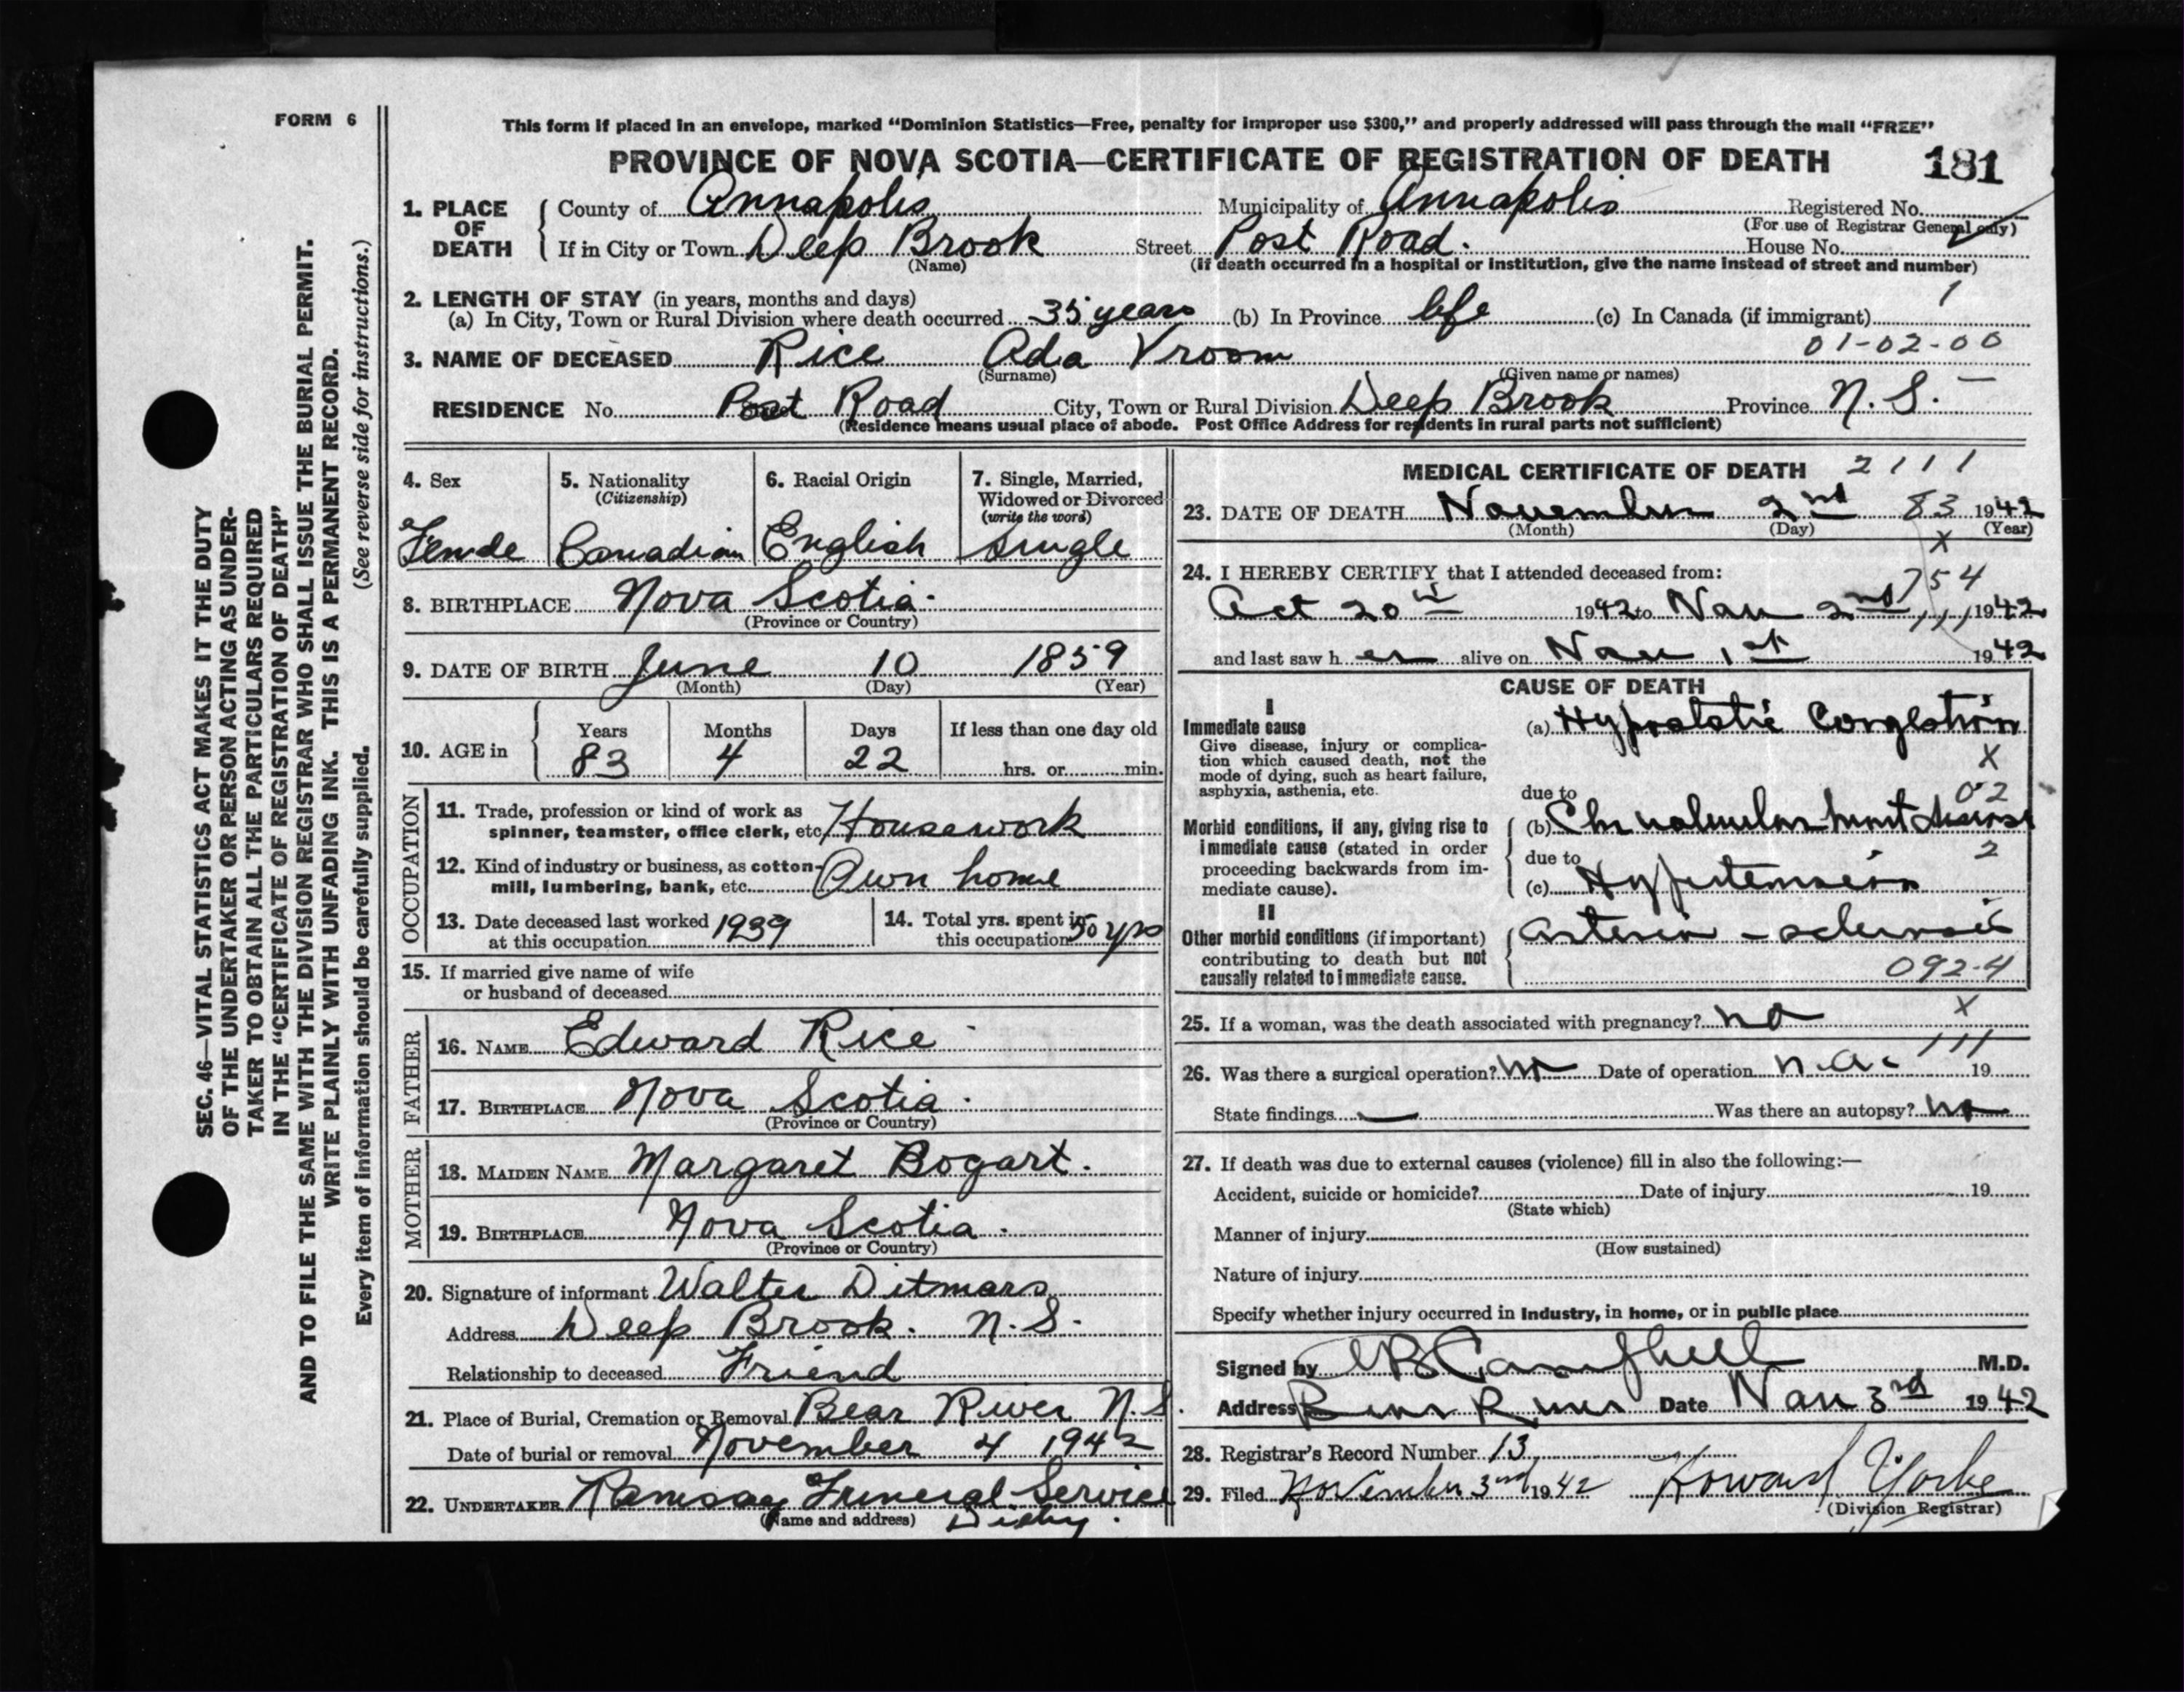 FORM 6
This form if placed in an envelope, marked “Dominion Statistics—Free, penalty for improper use $300,” and properly addressed will pass through the mail “FREE”
PROVINCE OF NOVA SCOTIA—CERTIFICATE OF REGISTRATION OF DEATH 181
1. PLACE OF DEATH County of Annapolis Municipality of Annapolis Registered No.
(For use of Registrar General only)
If in City or Town Deep Brook Street Post Road. House No.
(Name) (If death occurred in a hospital or institution, give the name instead of street and number)
2. LENGTH OF STAY (in years, months and days) 1
(a) In City, Town or Rural Division where death occurred 35 years (b) In Province life (c) In Canada (if immigrant)
3. NAME OF DECEASED Rice Ada Vroom 01-02-00
(Surname) (Given name or names)
RESIDENCE No. Post Road City, Town or Rural Division Deep Brook Province N.S.
(Residence means usual place of abode. Post Office Address for residents in rural parts not sufficient)
4. Sex 5. Nationality (Citizenship) 6. Racial Origin 7. Single, Married, Widowed or Divorced (write the word)
Female Canadian English Single
8. BIRTHPLACE Nova Scotia.
(Province or Country)
9. DATE OF BIRTH June 10 1859
(Month) (Day) (Year)
10. AGE in Years Months Days If less than one day old
83 4 22 hrs. or min.
OCCUPATION
11. Trade, profession or kind of work as spinner, teamster, office clerk, etc. Housework
12. Kind of industry or business, as cotton-mill, lumbering, bank, etc. Own home
13. Date deceased last worked at this occupation 1939 14. Total yrs. spent in this occupation 50 yrs
15. If married give name of wife
or husband of deceased
FATHER
16. NAME Edward Rice
17. BIRTHPLACE Nova Scotia.
(Province or Country)
MOTHER
18. MAIDEN NAME Margaret Bogart.
19. BIRTHPLACE Nova Scotia.
(Province or Country)
20. Signature of informant Walter Ditmars
Address Deep Brook. N.S.
Relationship to deceased Friend
21. Place of Burial, Cremation or Removal Bear River N.S.
Date of burial or removal November 4 1942
22. UNDERTAKER Ramsay Funeral Service
(Name and address) Digby.
MEDICAL CERTIFICATE OF DEATH 2111
23. DATE OF DEATH November 2nd 83 1942
(Month) (Day) (Year)
X
24. I HEREBY CERTIFY that I attended deceased from:
754
Oct 20th 1942 to Nov 2nd 1942
and last saw her alive on Nov 1st 1942
CAUSE OF DEATH
I
Immediate cause (a) Hypostatic Congestion
Give disease, injury or complication which caused death, not the mode of dying, such as heart failure, asphyxia, asthenia, etc.
X
due to 02
Morbid conditions, if any, giving rise to immediate cause (stated in order proceeding backwards from immediate cause).
(b) Chr valvular heart disease
due to 2
(c) Hypertension
II
Other morbid conditions (if important) contributing to death but not causally related to immediate cause.
Arterio-sclerosis
092-4
X
25. If a woman, was the death associated with pregnancy? no
111
26. Was there a surgical operation? no Date of operation n.a. 19
State findings — Was there an autopsy? no
27. If death was due to external causes (violence) fill in also the following:—
Accident, suicide or homicide? Date of injury 19
(State which)
Manner of injury
(How sustained)
Nature of injury
Specify whether injury occurred in Industry, in home, or in public place
Signed by Campbell M.D.
Address Bear River Date Nov 3rd 1942
28. Registrar's Record Number 13
29. Filed November 3rd 1942 Howard Yorke
(Division Registrar)
SEC. 46—VITAL STATISTICS ACT MAKES IT THE DUTY
OF THE UNDERTAKER OR PERSON ACTING AS UNDER-
TAKER TO OBTAIN ALL THE PARTICULARS REQUIRED
IN THE “CERTIFICATE OF REGISTRATION OF DEATH”
AND TO FILE THE SAME WITH THE DIVISION REGISTRAR WHO SHALL ISSUE THE BURIAL PERMIT.
WRITE PLAINLY WITH UNFADING INK. THIS IS A PERMANENT RECORD.
Every item of information should be carefully supplied. (See reverse side for instructions.)